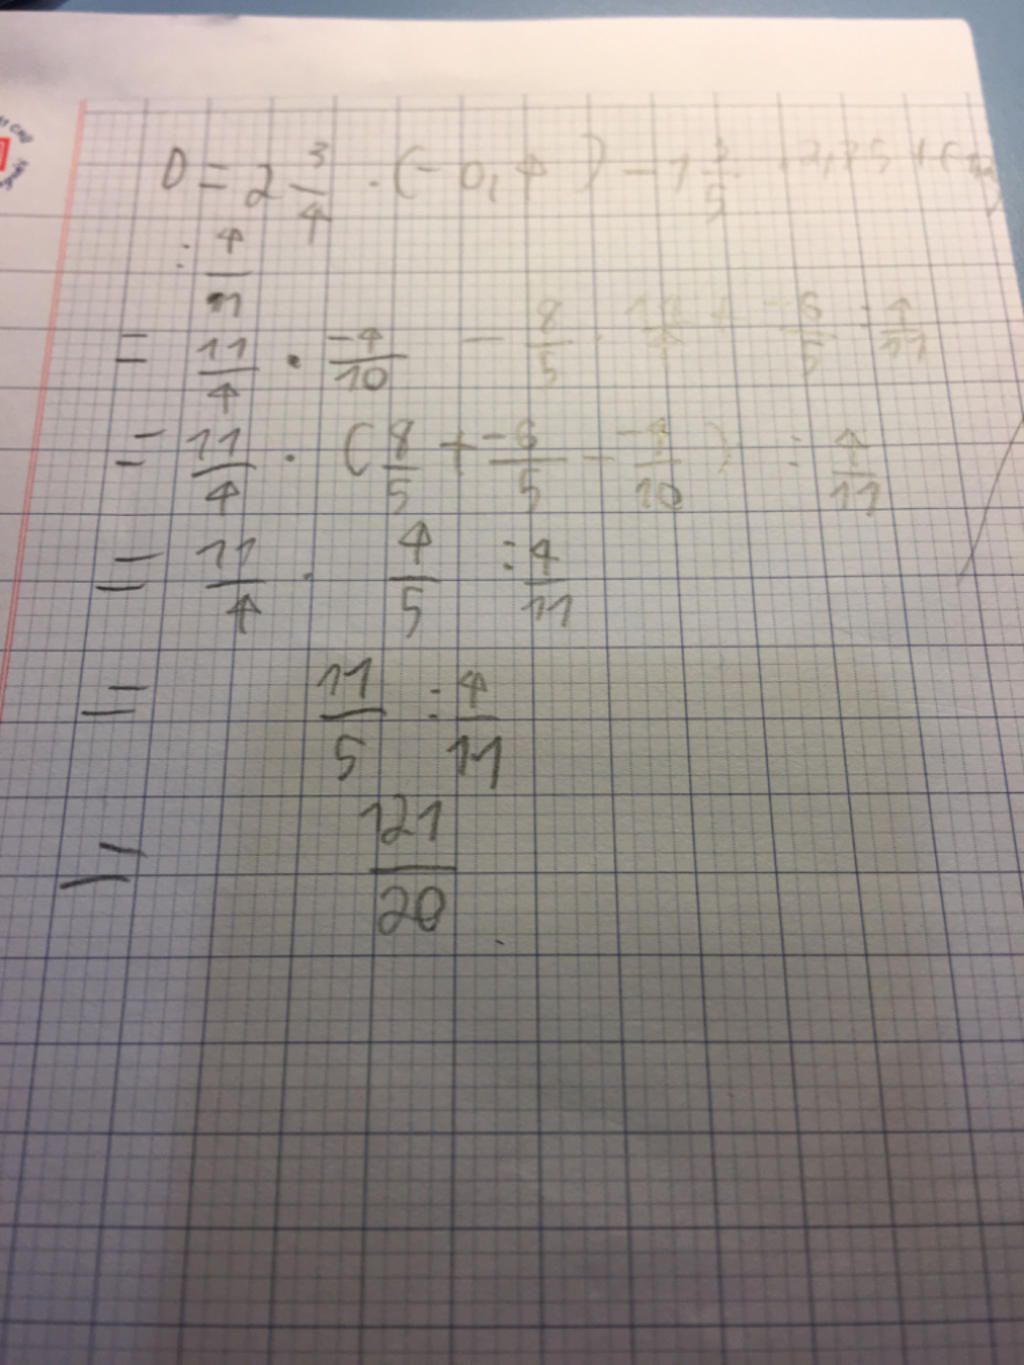 D = 2 3/4 . (-0,4) - 1 3/5 . 2,75 + (-1,2)
: 4/11
= 11/4 . -4/10 - 8/5 . 11/4 + -6/5 : 4/11
= 11/4 . (8/5 + -6/5 - -4/10) : 4/11
= 11/4 . 4/5 : 4/11
= 11/5 : 4/11
= 121/20